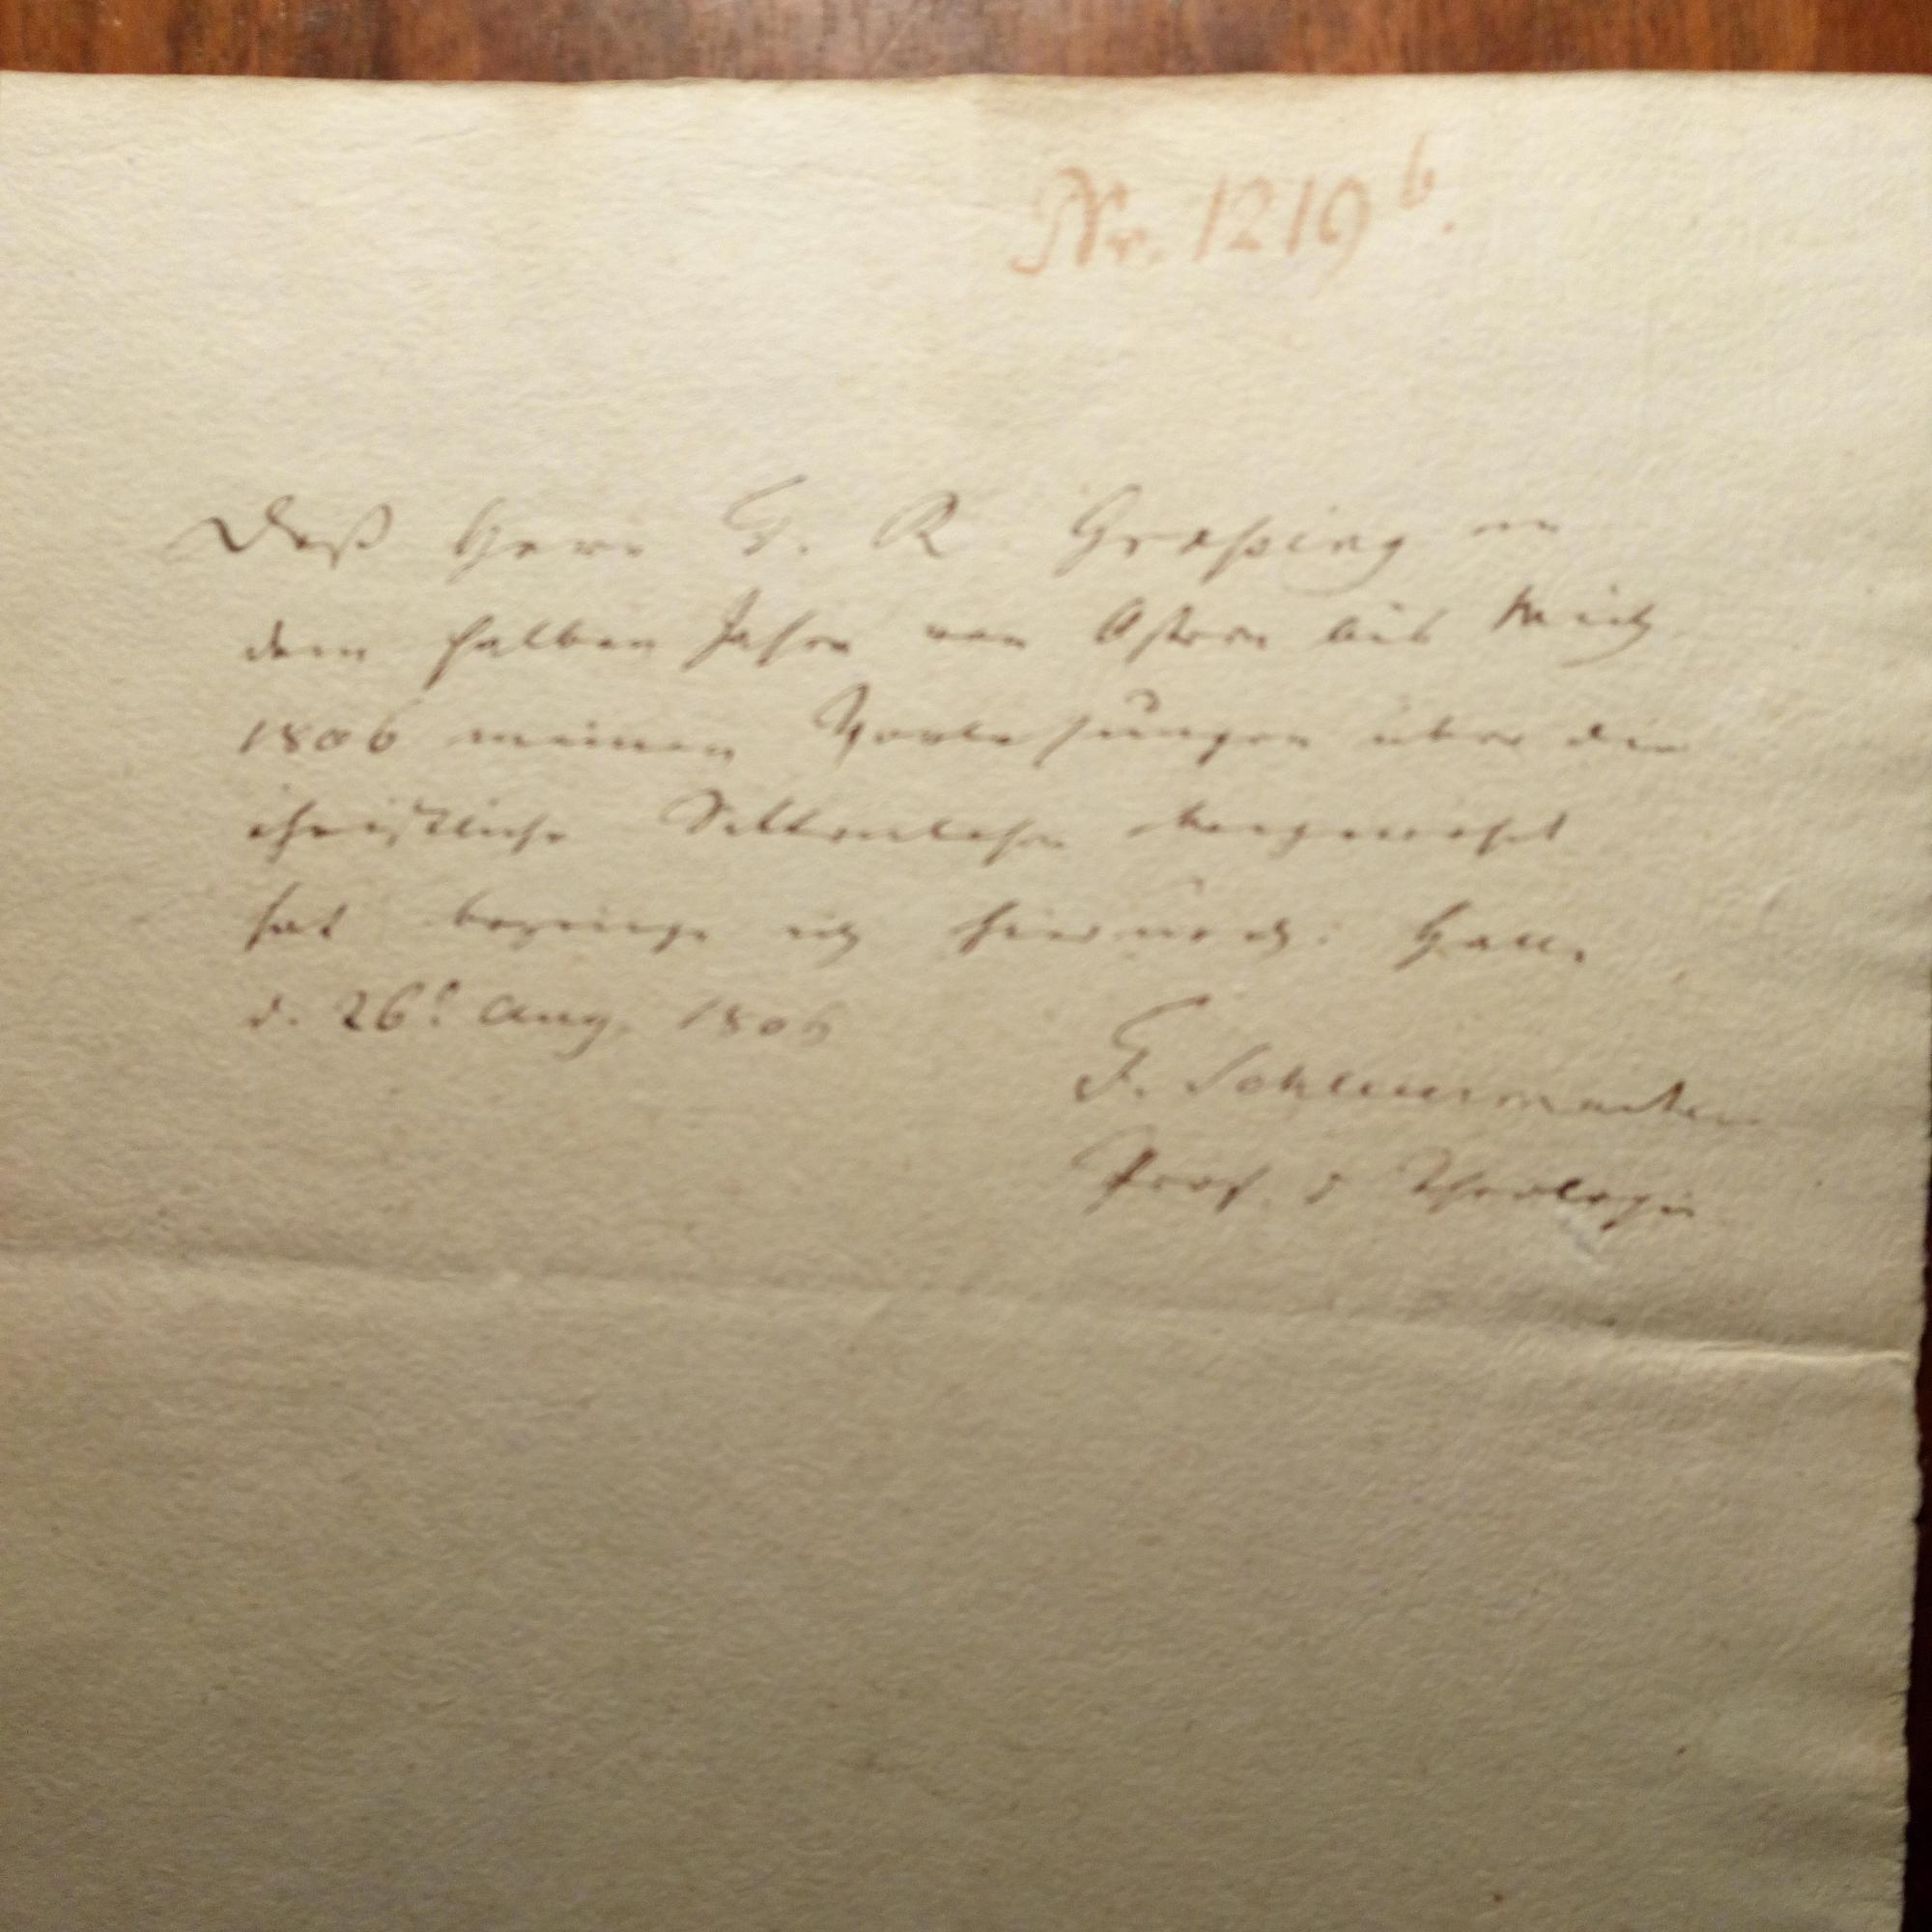 Nr. 1219 b.
Daß Herr F. R. Großing in
dem halben Jahre von Ostern bis Mich
1806 meinen Vorlesungen über die
christliche Sittenlehre beigewohnt
hat bezeuge ich hierdurch. Halle
d. 26t Aug. 1806
F. Schleiermacher
Prof. d Theologie